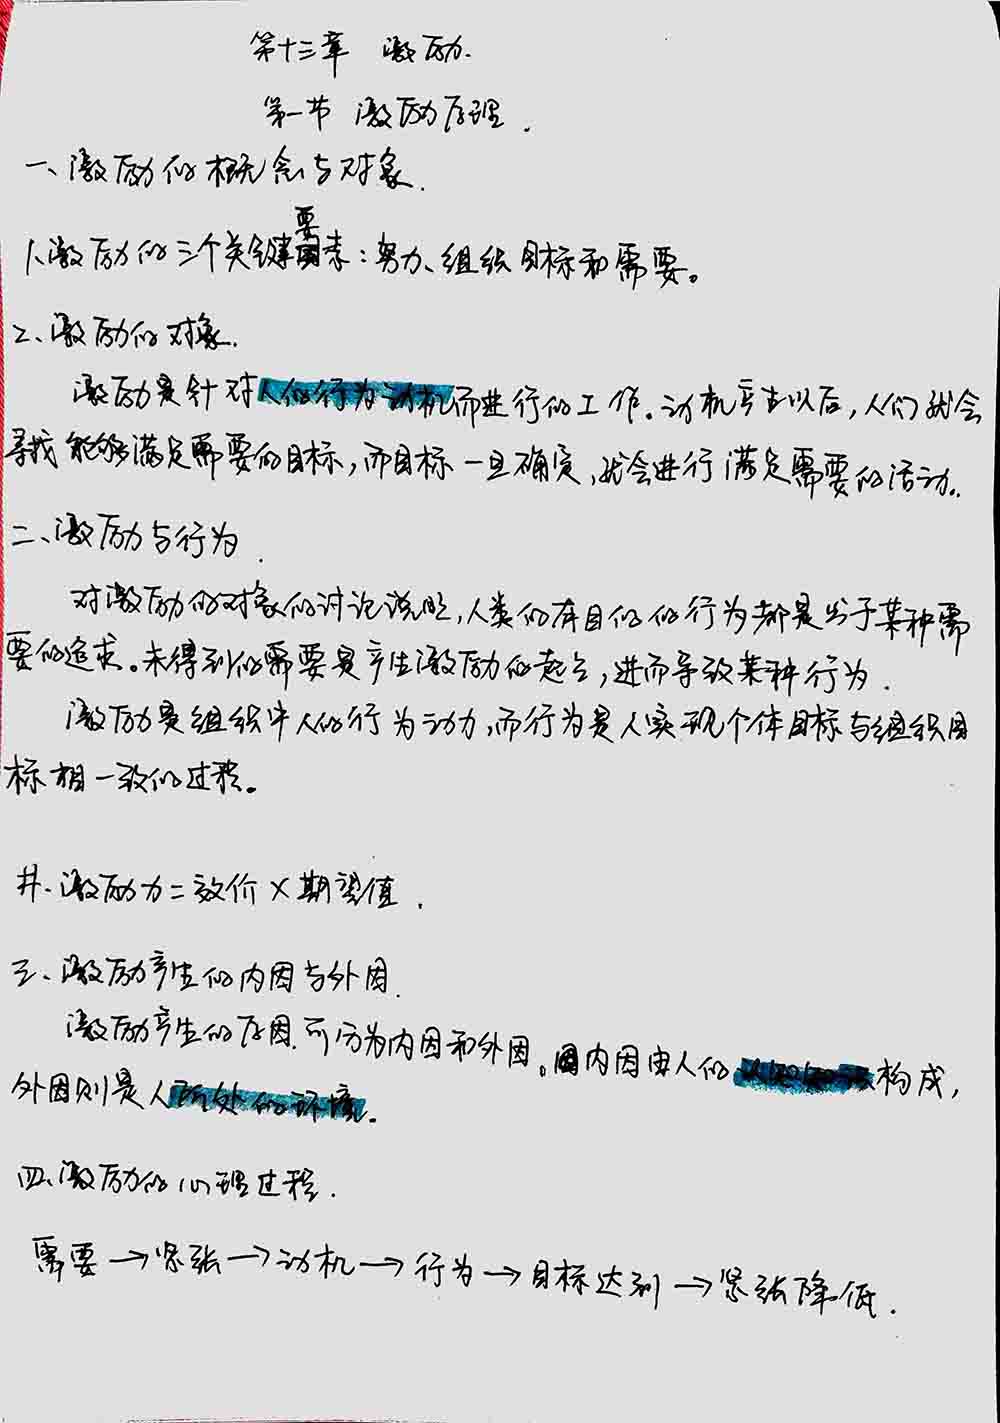 第十三章 激励.
第一节 激励原理.
一、激励的概念与对象.
1、激励的三个关键要素：努力、组织目标和需要。
2、激励的对象.
激励是针对人的行为动机而进行的工作。动机产生以后，人们就会
寻找能够满足需要的目标，而目标一旦确定，就会进行满足需要的活动。
二、激励与行为.
对激励的对象的讨论说明，人类的有目的的行为都是出于某种需
要的追求。未得到的需要是产生激励的起点，进而导致某种行为.
激励是组织中人的行为动力，而行为是人实现个体目标与组织目
标相一致的过程。
井、激励力=效价×期望值.
三、激励产生的内因与外因.
激励产生的原因.可分为内因和外因。内因由人的构成，
外因则是人所处的环境.
四、激励的心理过程.
需要→紧张→动机→行为→目标达到→紧张降低.